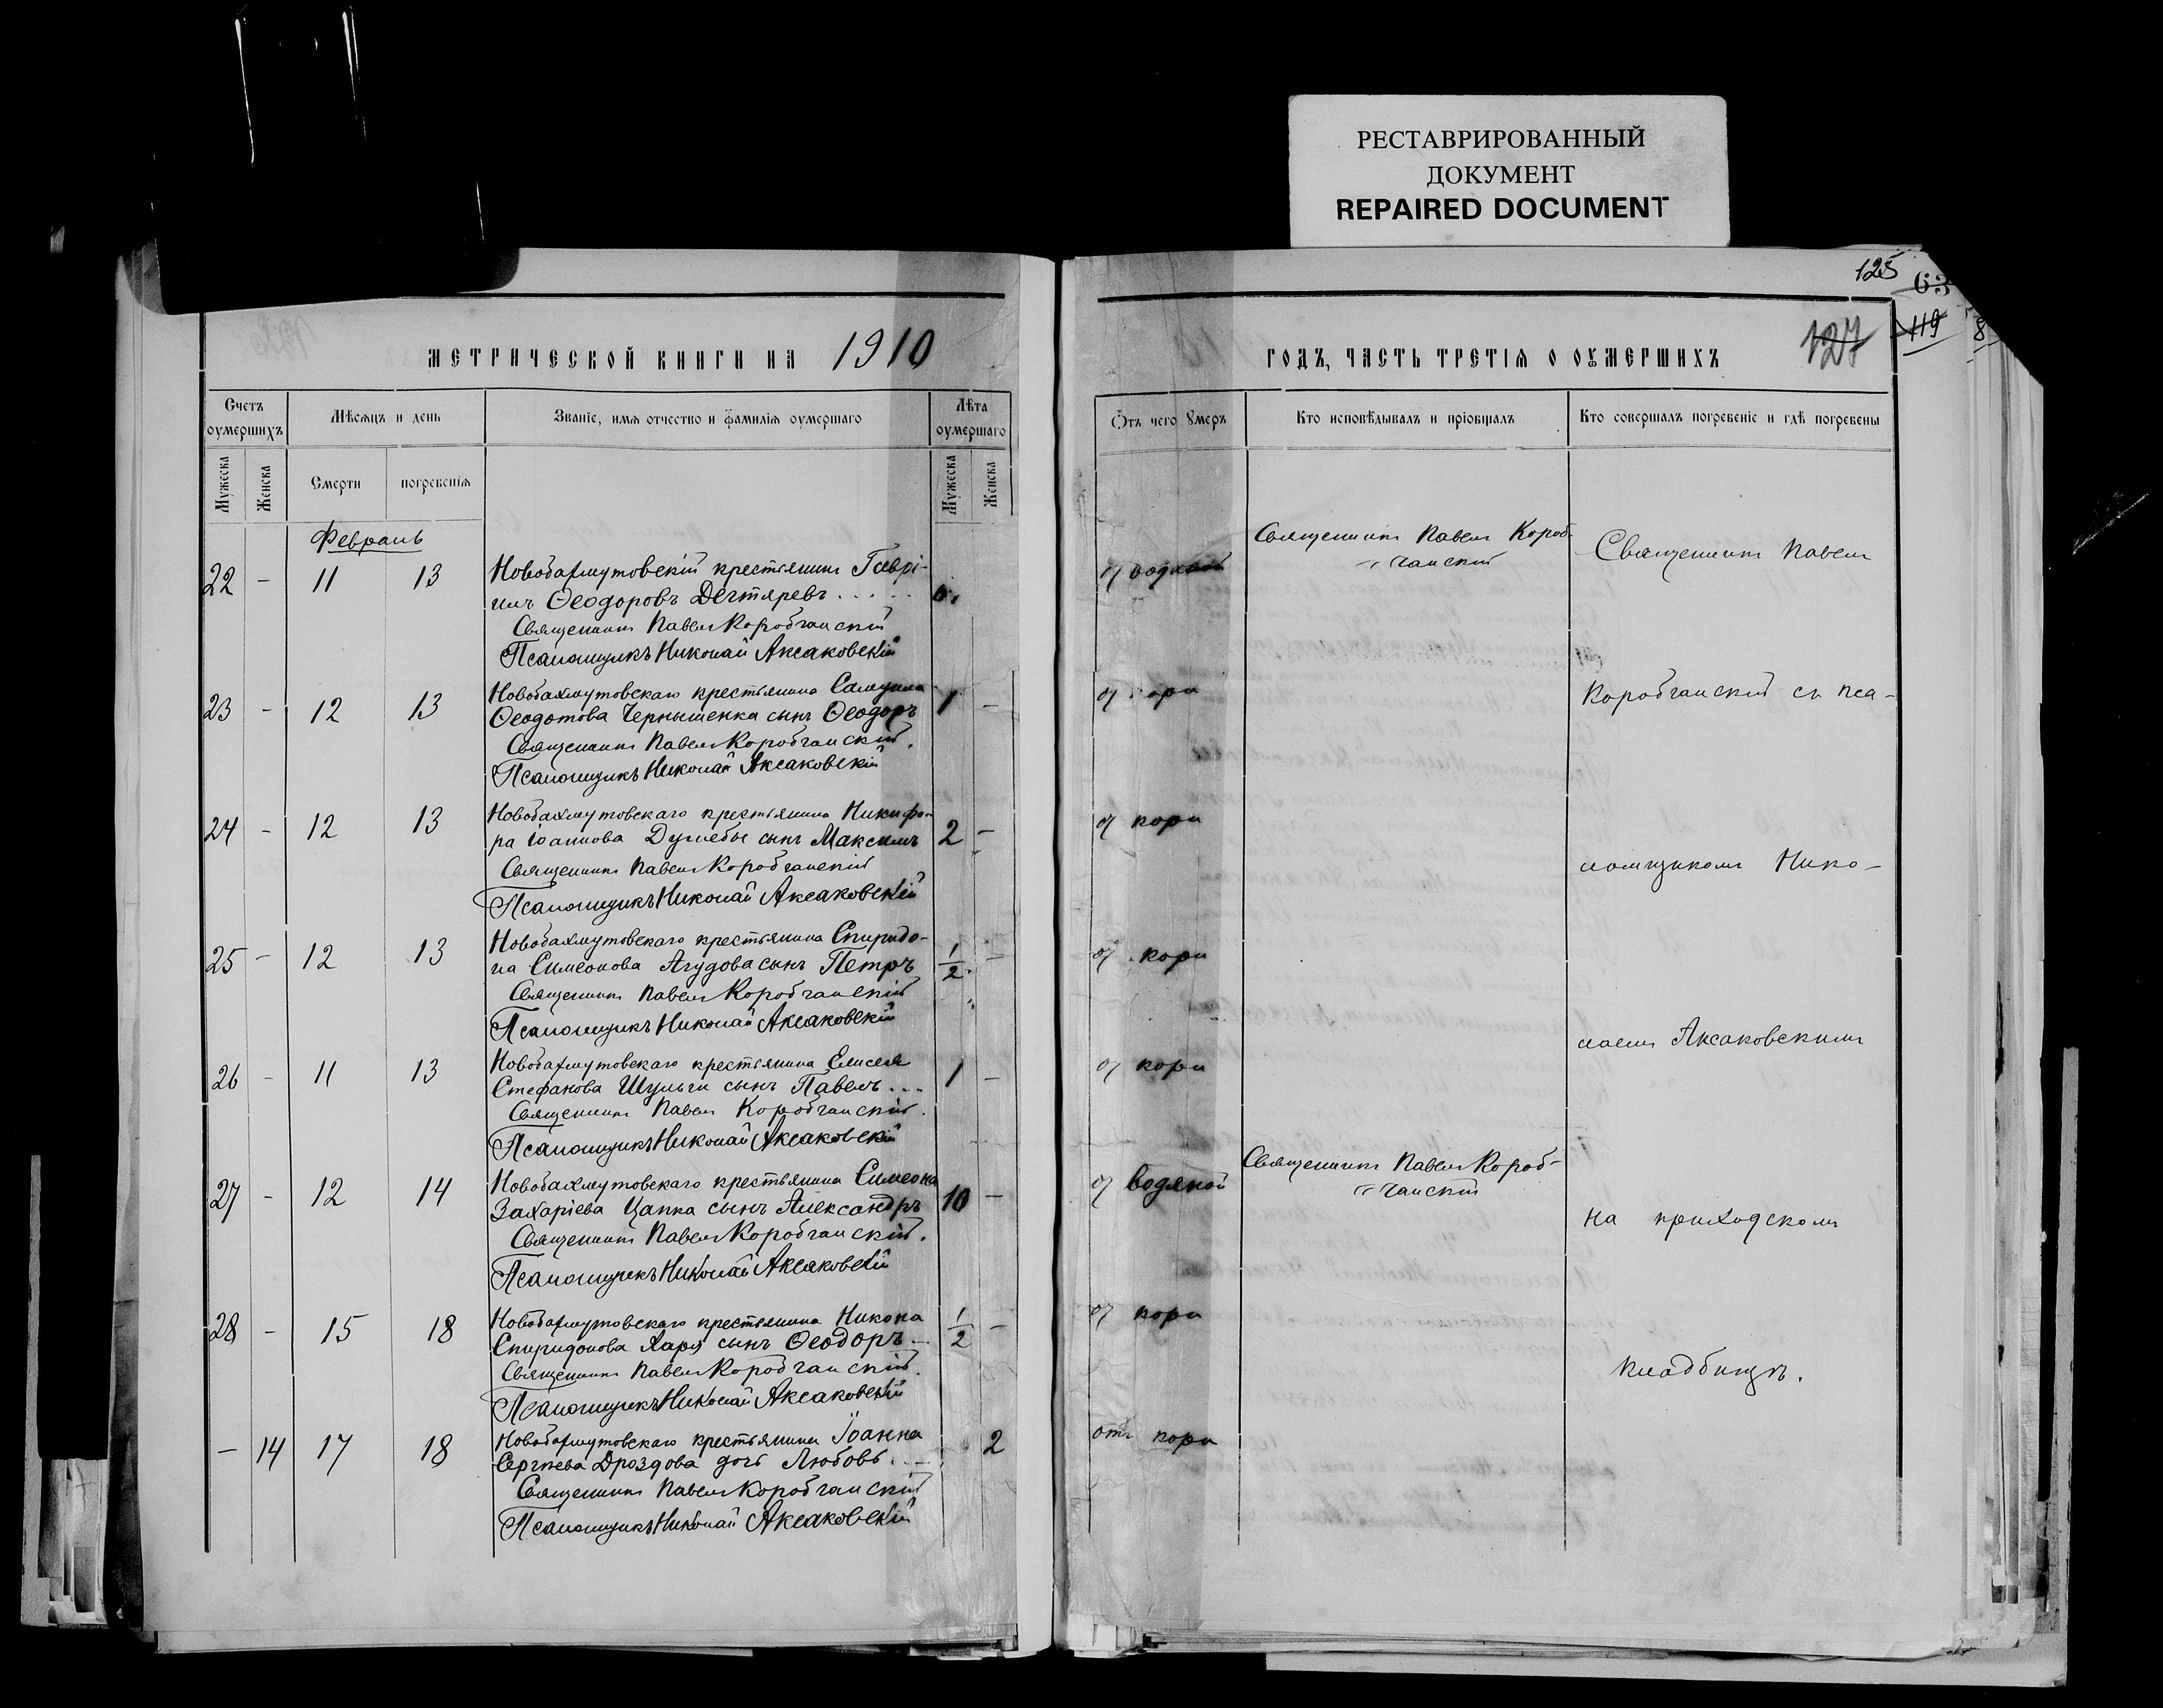 РЕСТАВРИРОВАННЫЙ
ДОКУМЕНТ
REPAIRED DOCUMENT
125
63
119
8
127
МЕТРИЧЕСКОЙ КНИГИ НА 1910
Счетъ оумершихъ
Мѣсяцъ и день
Званіе, имя отчество и фамилія оумершаго
Лѣта оумершаго
Мужеска
Женска
Смерти
погребенія
Мужеска
Женска
Февраль
22 - 11 13 Новобахмутовскій крестьянинъ Гаврі-
илъ Ѳеодоровъ Дегтяревъ . . . . .
Священникъ Павелъ Коробчанскій
Псаломщикъ Николай Аксаковскій
23 - 12 13 Новобахмутовскаго крестьянина Самуила
Ѳеодотова Чернышенка сынъ Ѳеодоръ 1 -
Священникъ Павелъ Коробчанскій.
Псаломщикъ Николай Аксаковскій
24 - 12 13 Новобахмутовскаго крестьянина Никифо-
ра Іоаннова Дулебы сынъ Максимъ 2 -
Священникъ Павелъ Коробчанскій
Псаломщикъ Николай Аксаковскій
25 - 12 13 Новобахмутовскаго крестьянина Спиридо-
на Симеонова Ягудова сынъ Петръ 1/2 -
Священникъ Павелъ Коробчанскій
Псаломщикъ Николай Аксаковскій
26 - 11 13 Новобахмутовскаго крестьянина Елисея
Стефанова Шульги сынъ Павелъ . . . 1 -
Священникъ Павелъ Коробчанскій.
Псаломщикъ Николай Аксаковскій
27 - 12 14 Новобахмутовскаго крестьянина Симеона
Захаріева Цапка сынъ Александръ 10 -
Священникъ Павелъ Коробчанскій.
Псаломщикъ Николай Аксаковскій
28 - 15 18 Новобахмутовскаго крестьянина Никона
Спиридонова Харя сынъ Ѳеодоръ 1/2 -
Священникъ Павелъ Коробчанскій.
Псаломщикъ Николай Аксаковскій
- 14 17 18 Новобахмутовскаго крестьянина Іоанна
Сергѣева Дроздова дочь Любовь 2
Священникъ Павелъ Коробчанскій
Псаломщикъ Николай Аксаковскій
ГОДЪ, ЧАСТЬ ТРЕТІЯ О ОУМЕРШИХЪ
Отъ чего умеръ
Кто исповѣдывалъ и пріобщалъ
Кто совершалъ погребеніе и гдѣ погребены
отъ водяной
Священникъ Павелъ Короб-
чанскій
Священникъ Павелъ
отъ кори
Коробчанскій съ пса-
отъ кори
ломщикомъ Нико-
отъ кори
лаемъ Аксаковскимъ
отъ кори
отъ водяной
Священникъ Павелъ Короб-
чанскій
на приходскомъ
отъ кори
кладбищѣ.
отъ кори